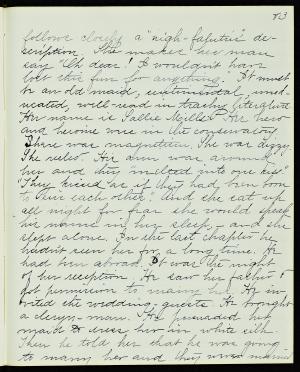 83
follows closely a "high-falutin" de-
scription. She makes her man
say "Uh dear! I wouldn't have
lost this fun for anything." It must
be an old maid, sentimental, uned-
ucated, well-read in trashy literature
Her name is Sallie Miller. Her hero
and heroine were in the conservatory.
There was magnetism. She was dizzy.
She reeled. His arm was around
her and they melted into one kiss"
"They kissed as if they had been born
to kiss each other." And she sat up
all night for fear she would speak
his name in her sleep, and she
slept alone. In the last chapter he
hadn't seen her for a long time. He
had been abroad. It was the night
of her reception. He saw her father &
got permission to marry her. He in-
vited the wedding-guests. He brought
a clergy-man. He persuaded her
maid to dress her in white silk.
Then he told her that he was going
to marry her and they were married